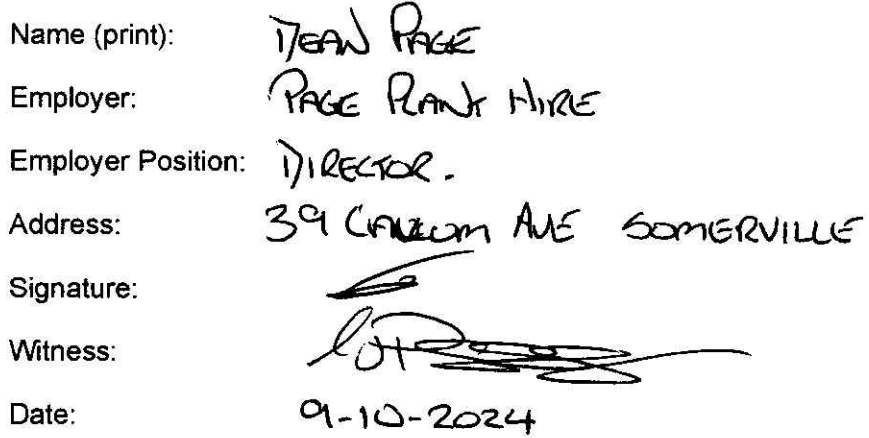 Name (print): DEAN PAGE
Employer: PAGE PLANT HIRE
Employer Position: DIRECTOR.
Address: 39 AVE SOMERVILLE
Signature:
Witness:
Date: 9-10-2024